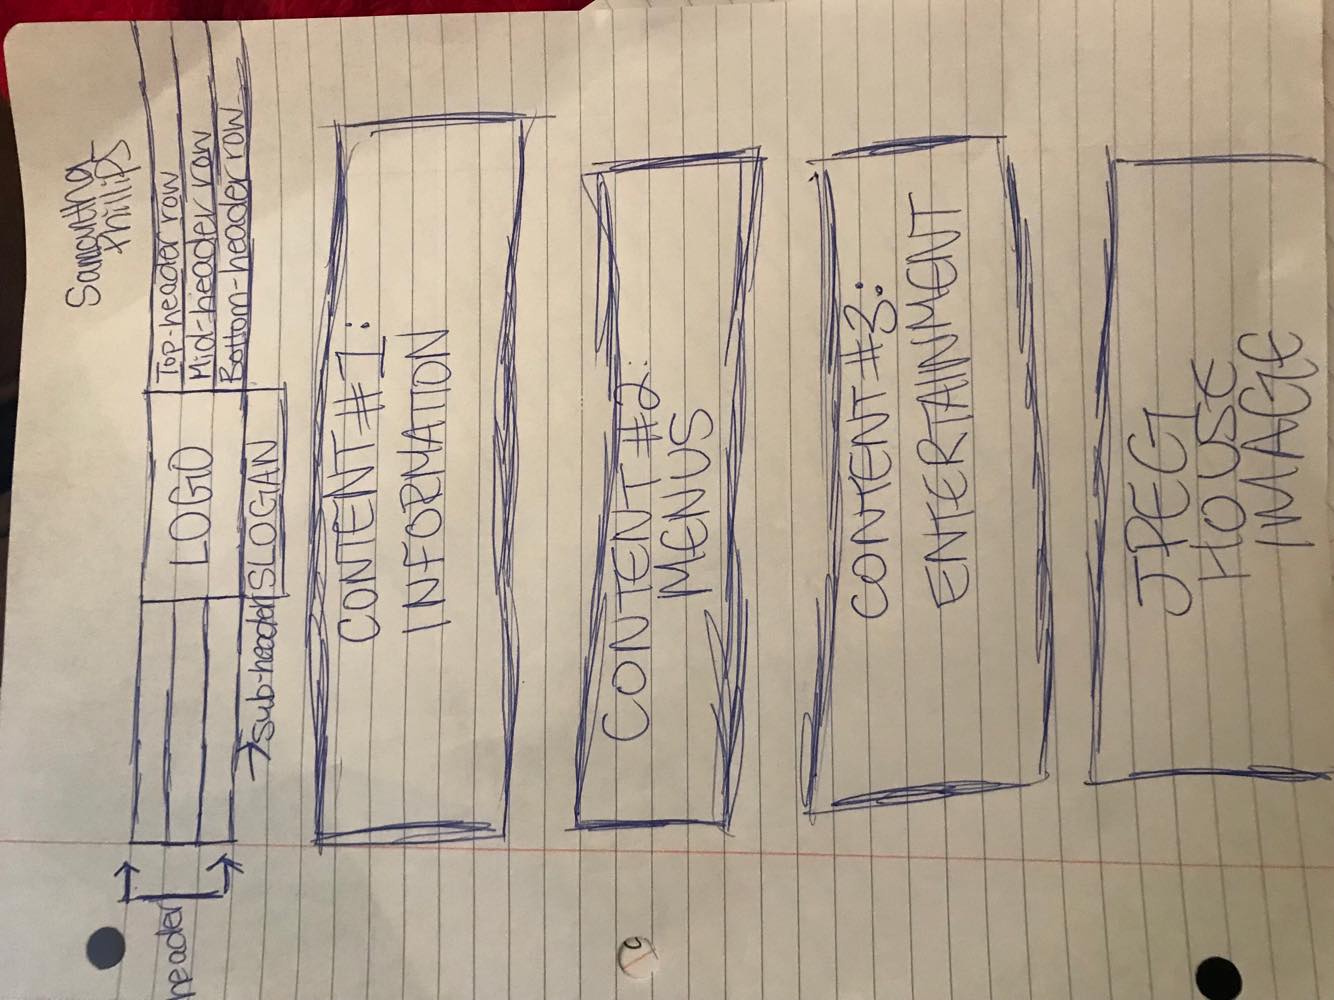 Samantha
Phillips
header
LOGO
Top-header row
Mid-header row
Bottom-header row
sub-header
SLOGAN
CONTENT #1:
INFORMATION
CONTENT #2:
MENUS
CONTENT #3:
ENTERTAINMENT
JPEG
HOUSE
IMAGE